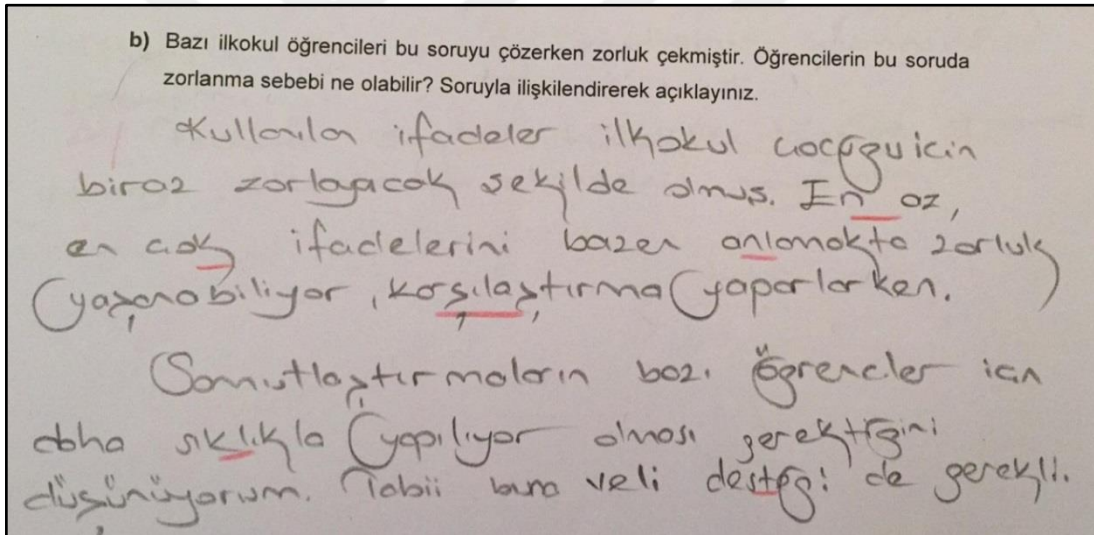 b) Bazı ilkokul öğrencileri bu soruyu çözerken zorluk çekmiştir. Öğrencilerin bu soruda
zorlanma sebebi ne olabilir? Soruyla ilişkilendirerek açıklayınız.
Kullanılan ifadeler ilkokul çocuğu için
biraz zorlayacak şekilde olmuş. En az,
en çok ifadelerini bazen anlamakta zorluk
yaşanabiliyor, karşılaştırma yaparlarken.
Somutlaştırmaların bazı öğrenciler için
daha sıklıkla yapılıyor olması gerektiğini
düşünüyorum. Tabii buna veli desteği de gerekli.